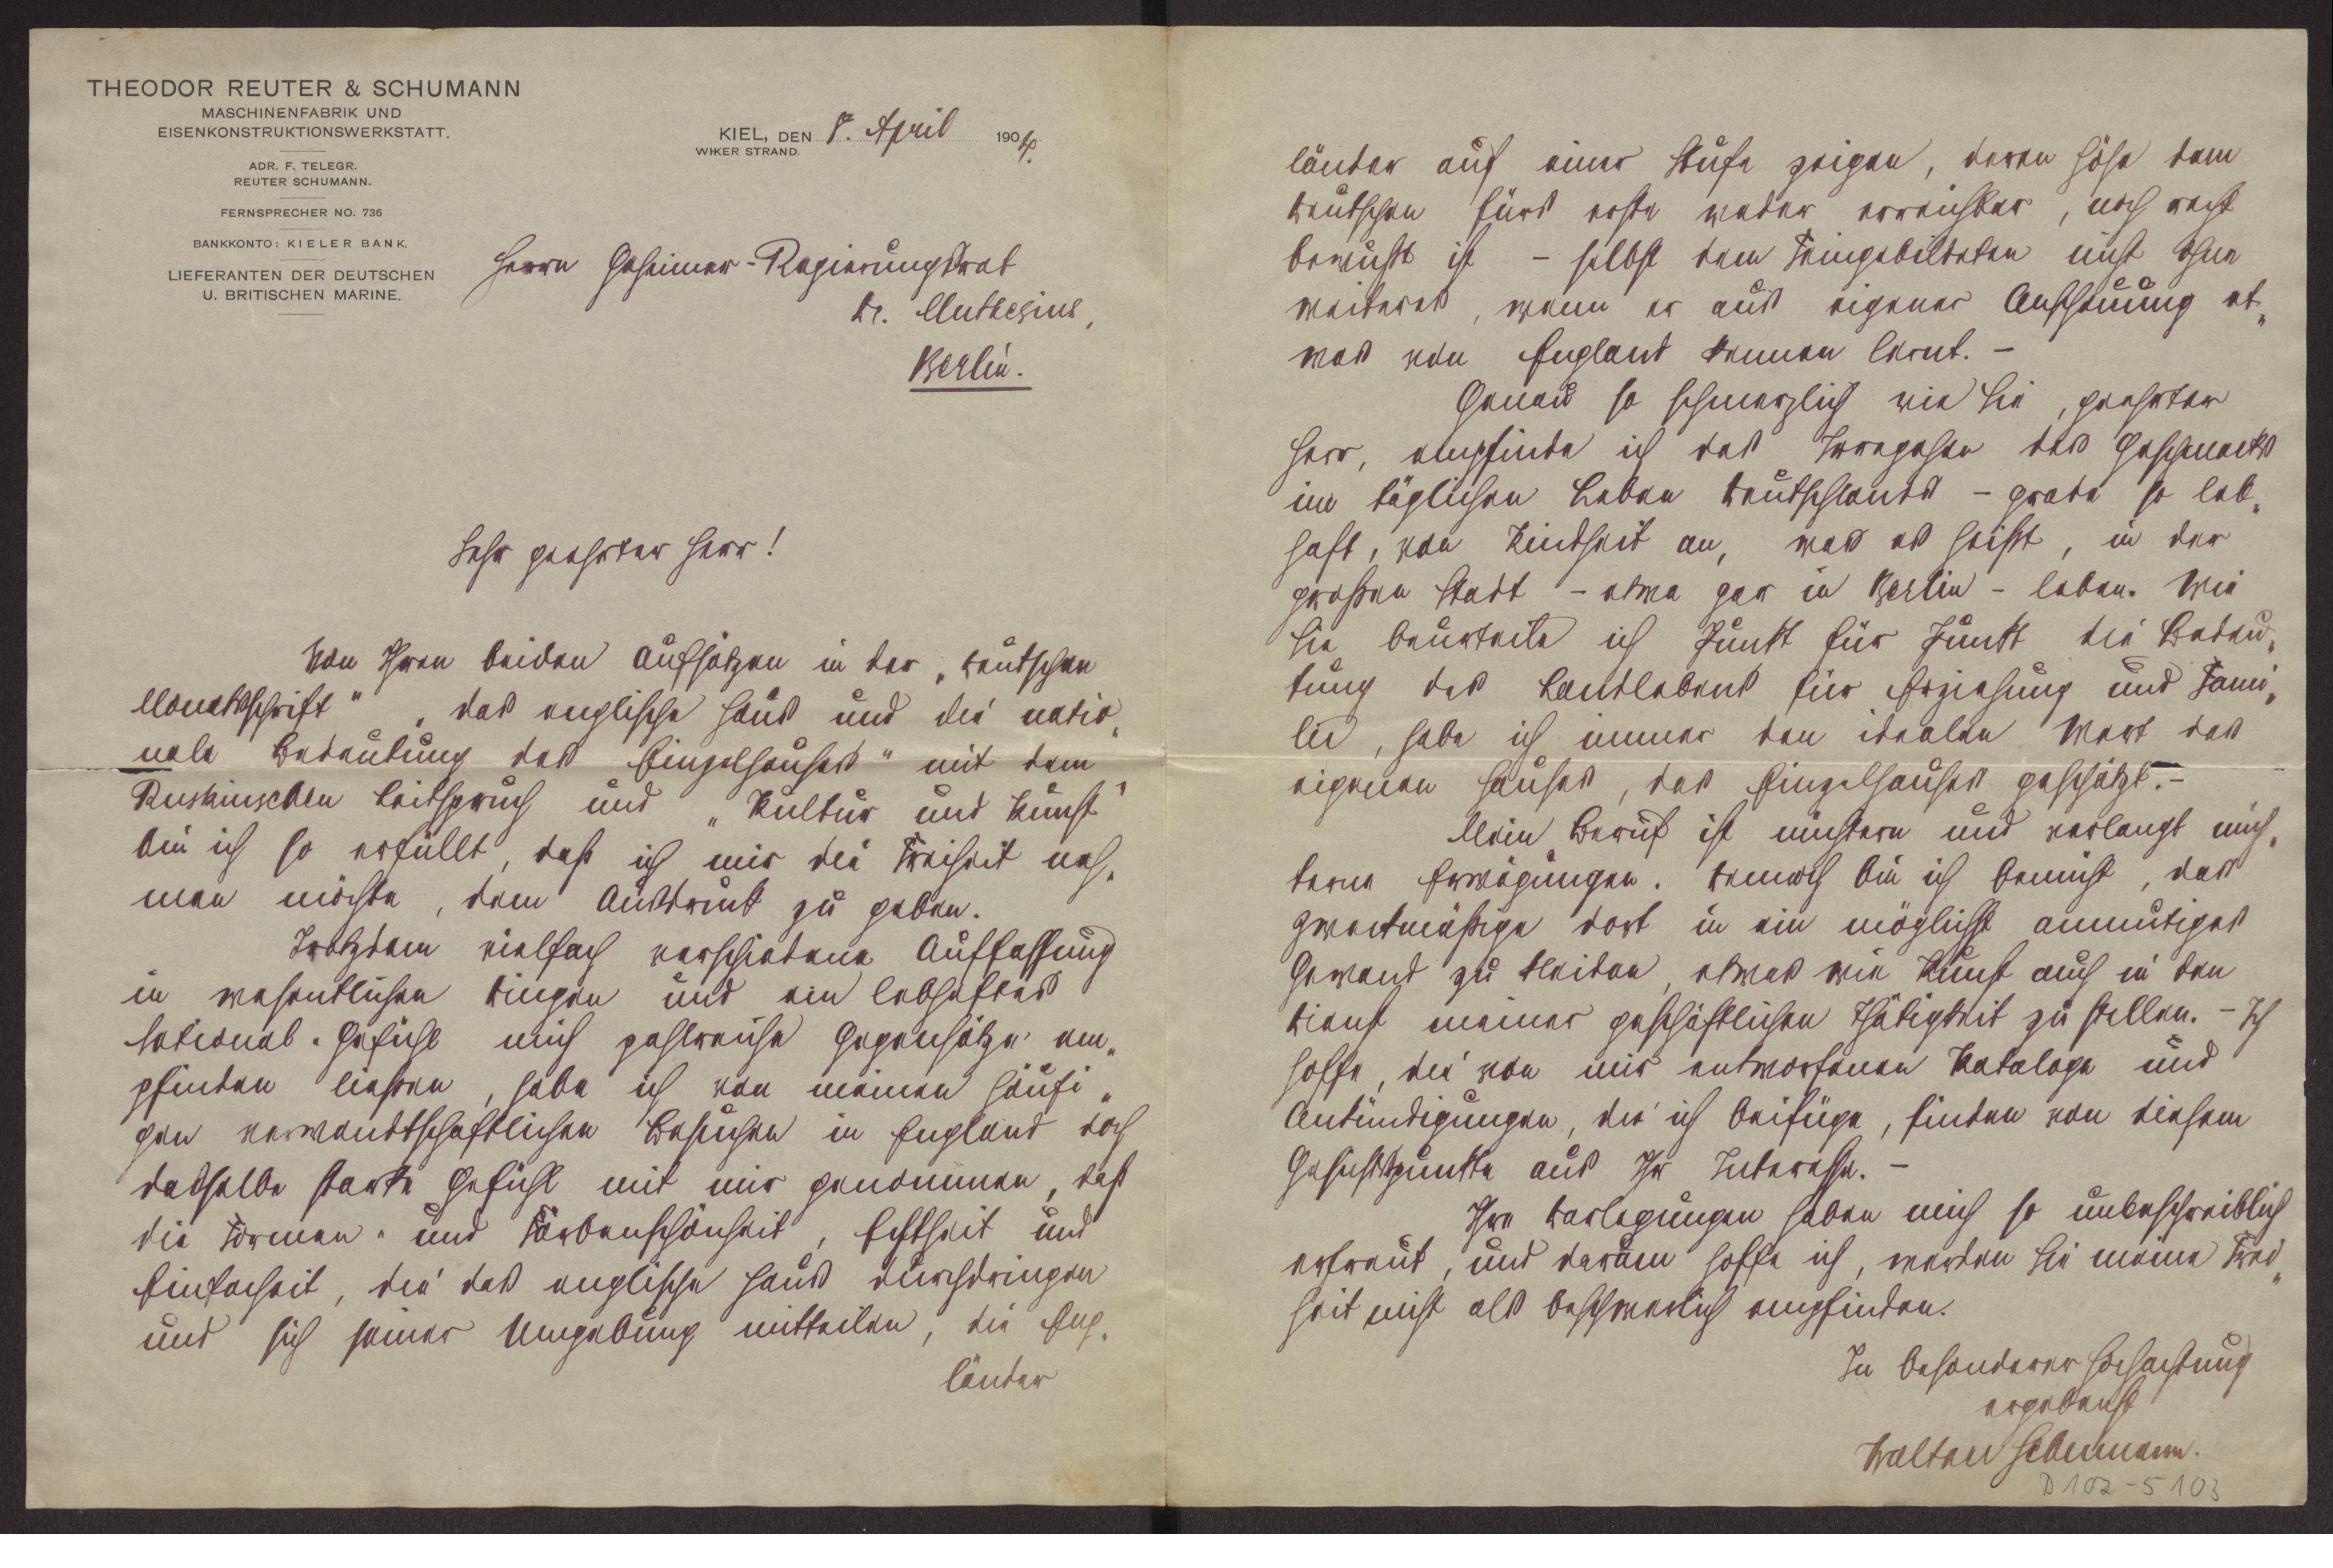 THEODOR REUTER & SCHUMANN
MASCHINENFABRIK UND
EISENKONSTRUKTIONSWERKSTATT.
ADR. F. TELEGR.
REUTER SCHUMANN.
FERNSPRECHER NO. 736
BANKKONTO: KIELER BANK.
LIEFERANTEN DER DEUTSCHEN
U. BRITISCHEN MARINE.
KIEL, DEN 8. April 1904.
WIKER STRAND.
Herrn Geheimer-Regierungsrat
Dr. Muthesius,
Berlin.
Sehr geehrter Herr!
Von Ihren beiden Aufsätzen in der „Deutschen
Monatsschrift" „das englische Haus und die natio„
nale Bedeutung des Einzelhauses" mit dem
Ruskinschen Leitspruch und „Kultur und Kunst"
bin ich so erfüllt, daß ich mir die Freiheit neh„
men möchte, dem Ausdruck zu geben.
Trotzdem vielfach verschiedene Auffassung
in wesentlichen Dingen und ein lebhaftes
National-Gefühl mich zahlreiche Gegensätze em„
pfinden ließen, habe ich von meinen häufi„
gen verwandtschaftlichen Besuchen in England doch
dasselbe starke Gefühl mit mir genommen, daß
die Formen- und Farbenschönheit, Echtheit und
Einfachheit, die das englische Haus durchdringen
und sich seiner Umgebung mitteilen, die Eng„
länder
länder auf einer Stufe zeigen, deren Höhe dem
Deutschen fürs erste weder erreichbar, noch recht
bewußt ist - selbst dem Feingebildeten nicht ohne
weiteres, wenn er aus eigener Anschauung et„
was von England kennen lernt. -
Genau so schmerzlich wie Sie, geehrter
Herr, empfinde ich das Irregehen des Geschmacks
im täglichen Leben Deutschlands - grade so leb„
haft, von Kindheit an, was es heißt, in der
großen Stadt - etwa gar in Berlin - leben. Wie
Sie beurteile ich Punkt für Punkt die Bedeu„
tung des Landlebens für Erziehung und Fami„
lie, habe ich immer den idealen Wert des
eigenen Hauses, des Einzelhauses geschätzt. -
Mein Beruf ist nüchtern und verlangt nüch„
terne Erwägungen. Dennoch bin ich bemüht, das
Zweckmäßige dort in ein möglichst anmutiges
Gewand zu kleiden, etwas wie Kunst auch in den
Dienst meiner geschäftlichen Thätigkeit zu stellen. - Ich
hoffe, die von mir entworfenen Kataloge und
Ankündigungen, die ich beifüge, finden von diesem
Gesichtspunkte aus Ihr Interesse. -
Ihre Darlegungen haben mich so unbeschreiblich
erfreut, und darum hoffe ich, werden Sie meine Frei„
heit nicht als beschwerlich empfinden.
In besonderer Hochachtung
ergebenst
Walter Schumann.
D 102-5103